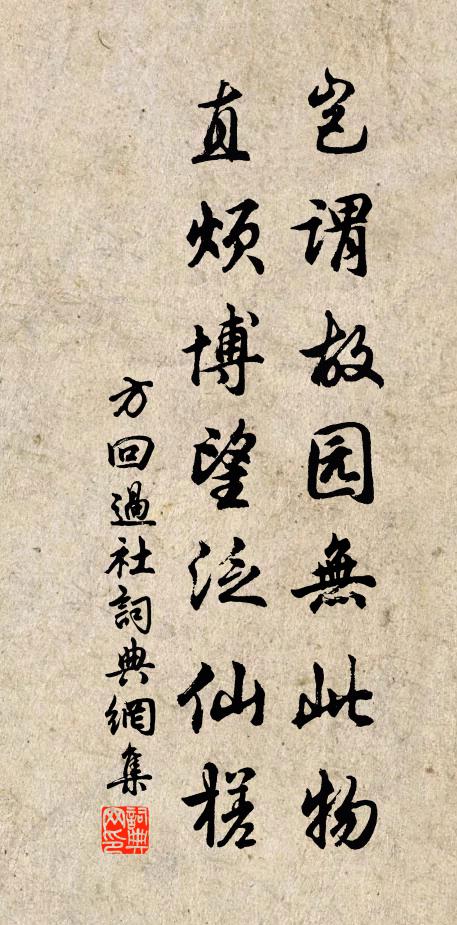 岂谓故园無此物
直烦博望泛仙槎
方回過社詞典網集
詞典网印